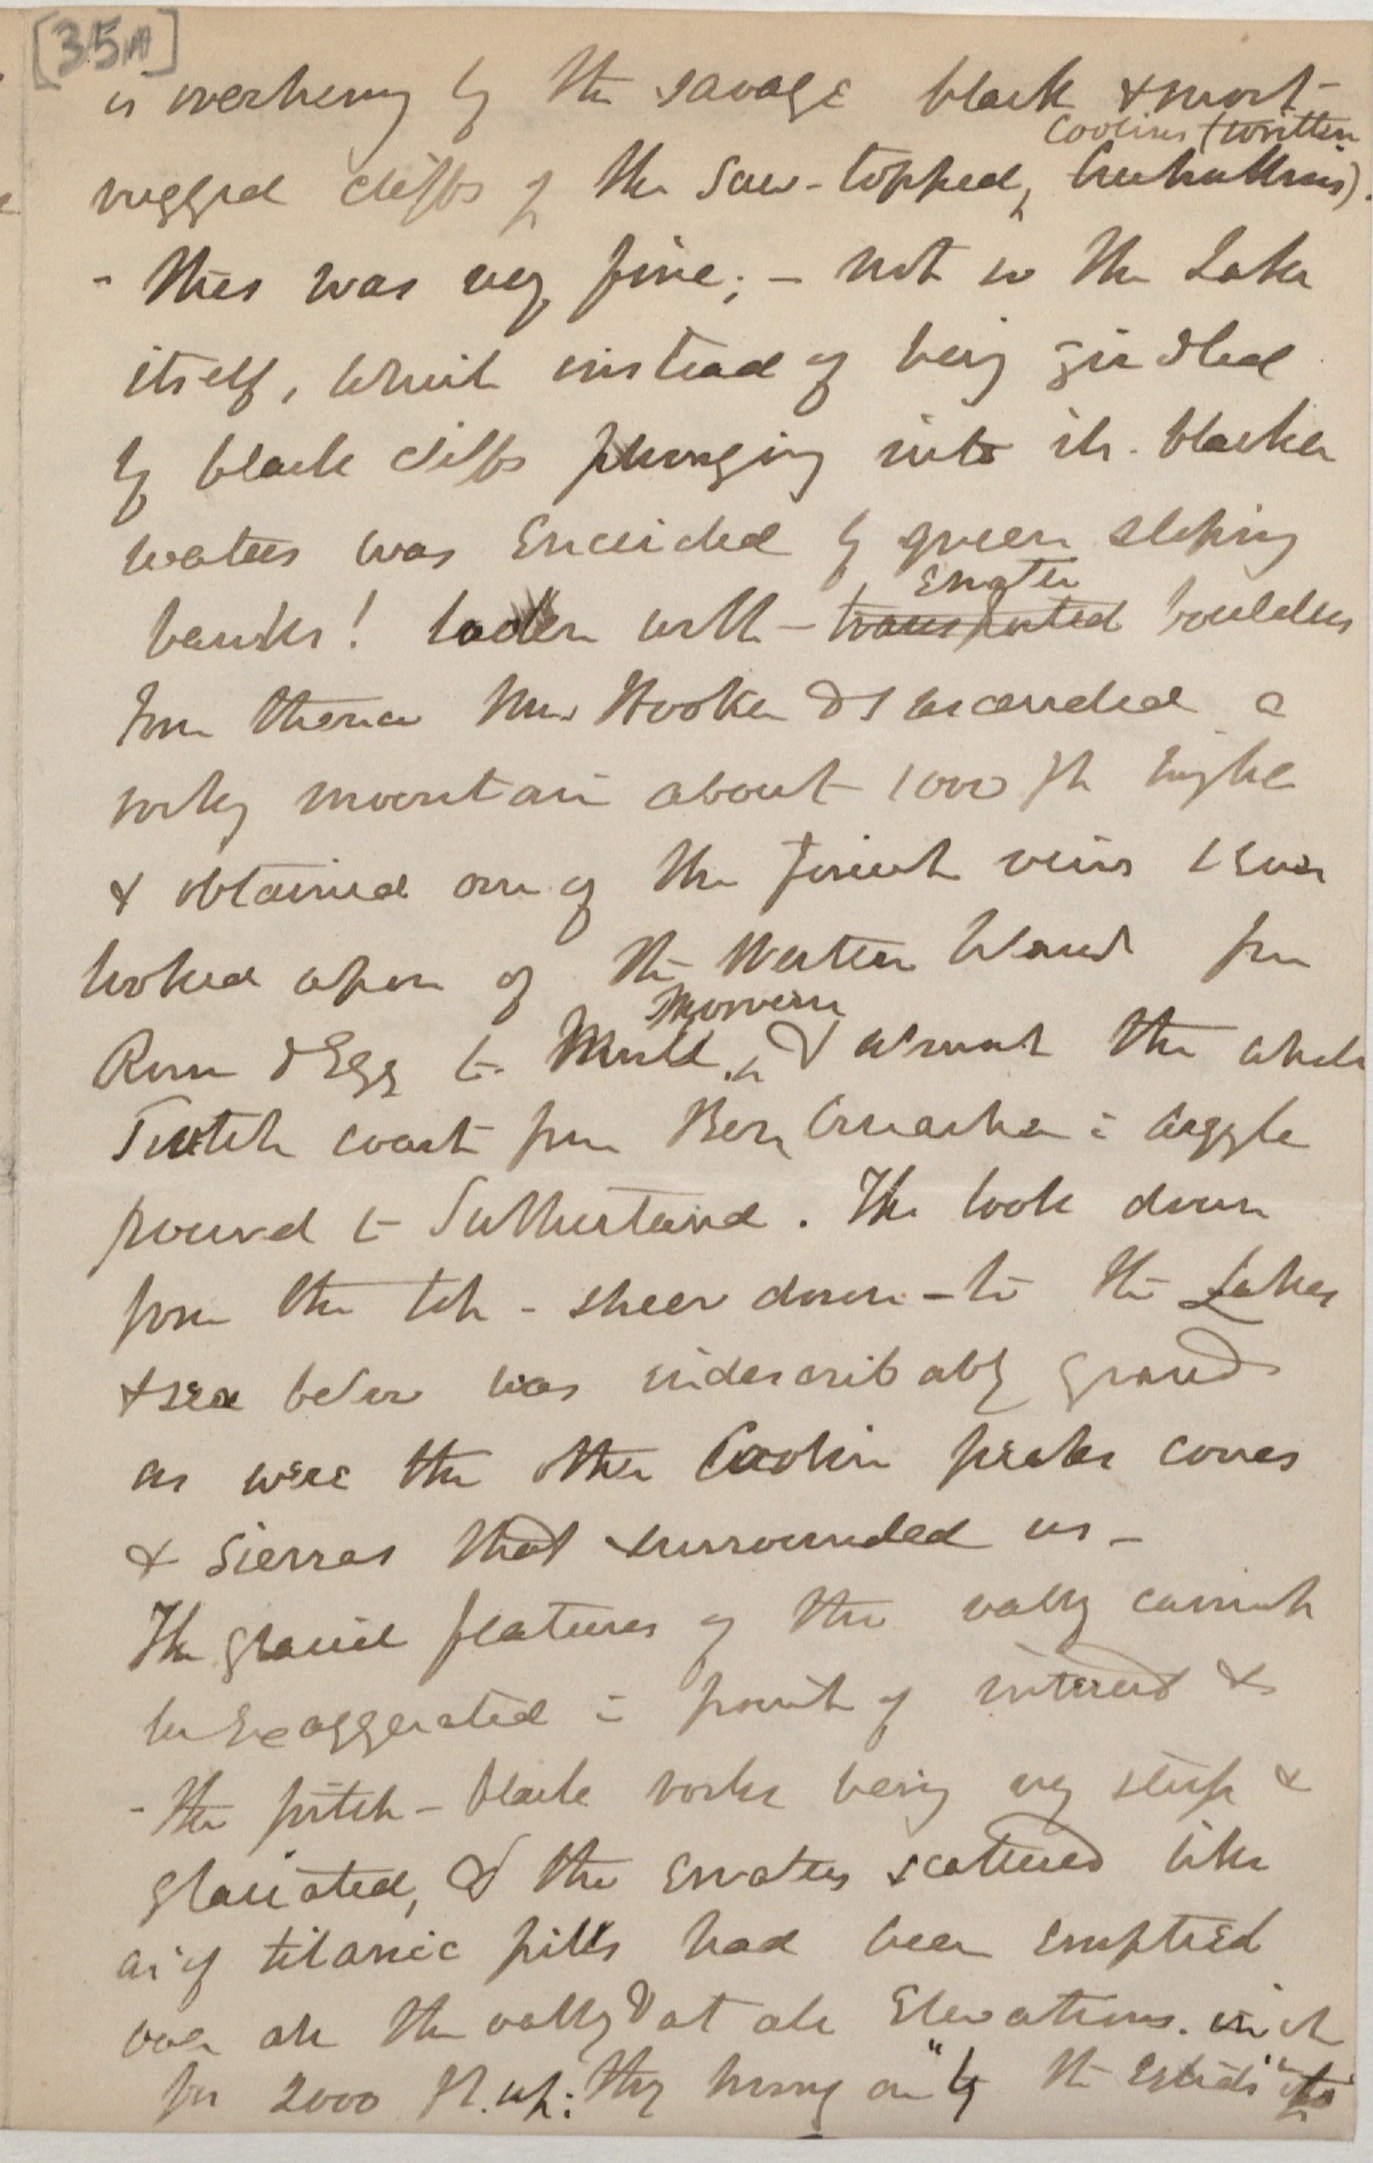 [35A]
is overhung by the savage black & most
rugged cliffs of the saw-topped, Coolins (written Cuchullins).
- this was very fine; - not so the Lake
itself, which instead of being girdled
by black cliffs plunging into its blacker
waters was encircled by green sloping
banks! laden with - transported erratic boulders
from thence Mrs Hooker & I ascended a
rocky mountain about 1000 ft higher
& obtained one of the finest views I ever
looked upon of the Western Islands from
Rum & Egg to Mull, Morvern & almost the whole
Scotch coast from Ben Cruachan in Argyle
round to Sutherland. The look down
from the top - sheer down - to the Lakes
& sea below was indescribably grand
as were the other Coolin peaks cones
& Sierras that surrounded us -
The glacial features of the valley cannot
be exaggerated in point of interest &
- the pitch-black rocks being very steep &
glaciated, & the erratics scattered like
as if titanic pills had been emptied
over all the valley & at all Elevations.
for 2000 ft. up: they hung on "by the Eyelids"